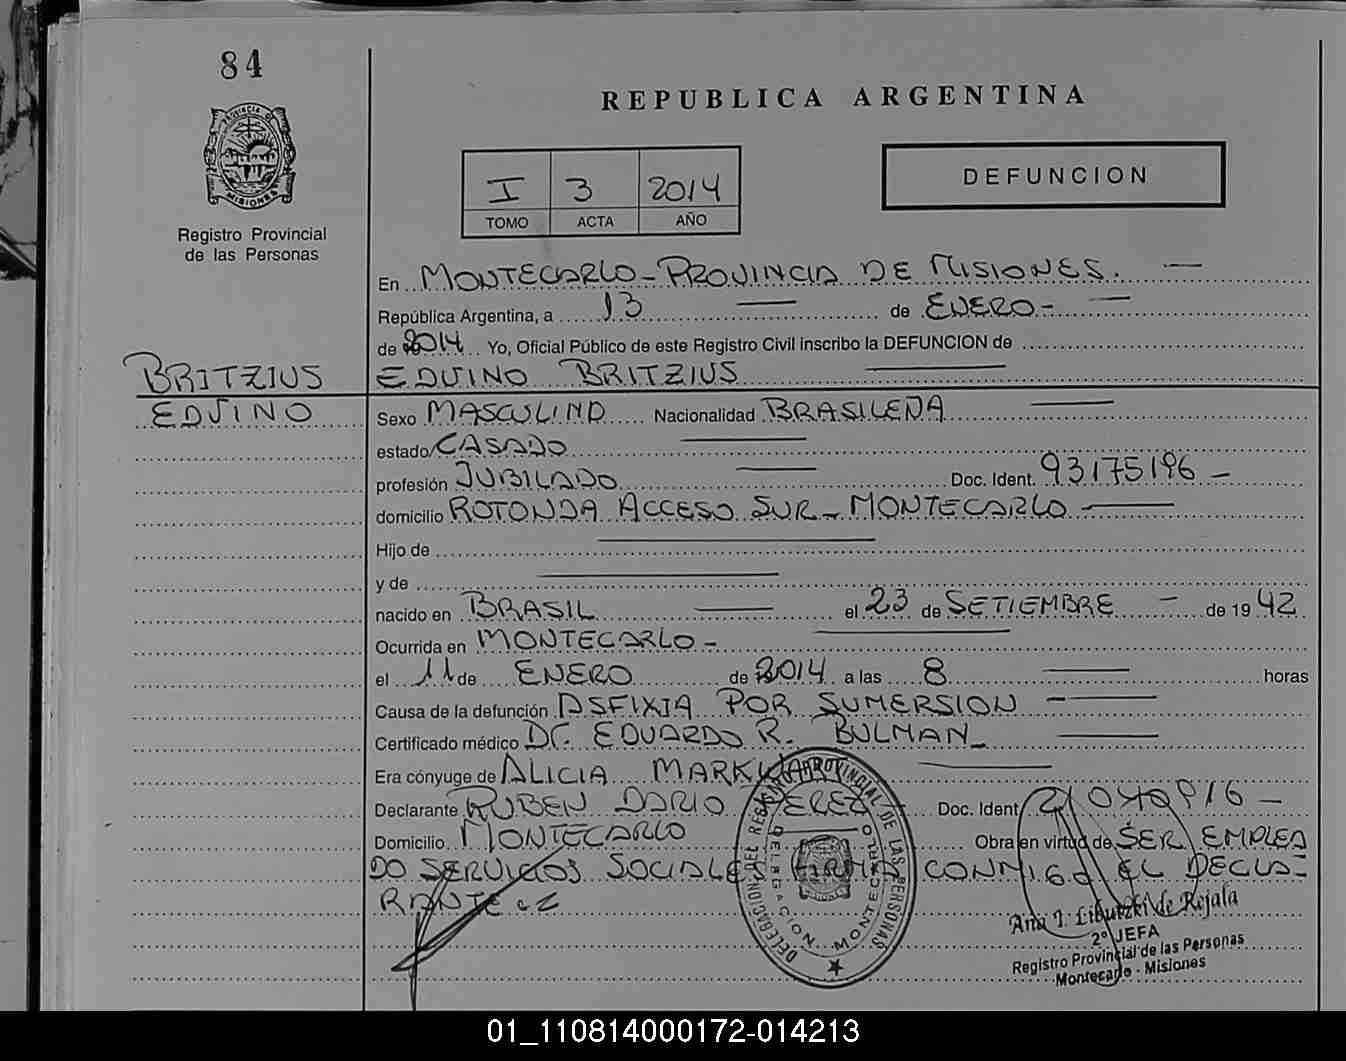 84
REPUBLICA ARGENTINA
PROVINCIA DE
MISIONES
Registro Provincial
de las Personas
I 3 2014
TOMO ACTA AÑO
DEFUNCION
En MONTECARLO - PROVINCIA DE MISIONES. —
República Argentina, a 13 — de ENERO - —
de 2014 Yo, Oficial Público de este Registro Civil inscribo la DEFUNCION de
BRITZIUS EDVINO BRITZIUS —
EDVINO Sexo MASCULINO Nacionalidad BRASILEÑA —
estado CASADO —
profesión JUBILADO — Doc. Ident. 93175196 -
domicilio ROTONDA ACCESO SUR - MONTECARLO —
Hijo de —
y de —
nacido en BRASIL — el 23 de SETIEMBRE - de 1942
Ocurrida en MONTECARLO - —
el 11 de ENERO de 2014 a las 8 — horas
Causa de la defunción ASFIXIA POR SUMERSION - —
Certificado médico DR. EDUARDO R. BULMAN - —
Era cónyuge de ALICIA —
Declarante RUBEN DARIO PEREZ Doc. Ident.
Domicilio MONTECARLO — Obra en virtud de SER EMPLEA
DO SERVICIOS SOCIALES FIRMA CONMIGO EL DECLA-
RANTE
DELEGACION DEL REGISTRO PROVINCIAL DE LAS PERSONAS
DELEGACION MONTECARLO
Ana I. de Rejala
2º JEFA
Registro Provincial de las Personas
Montecarlo - Misiones
01_110814000172-014213